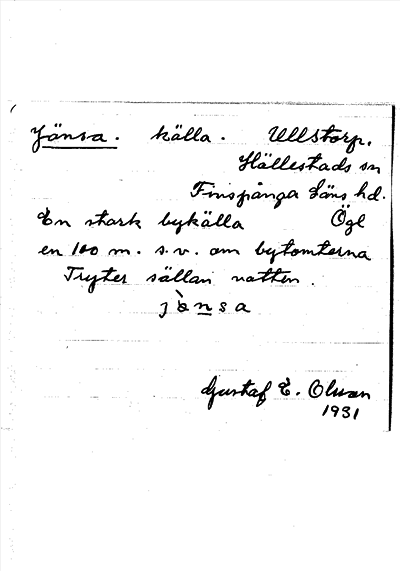 Jänsa. källa. Ullstorp.
Hällestads sn
Finspånga läns hd.
En stark bykälla Ögl
en 100 m. s.v. om bytomterna
Tryter sällan vatten.
jènsa
Gustaf E. Olsson
1931